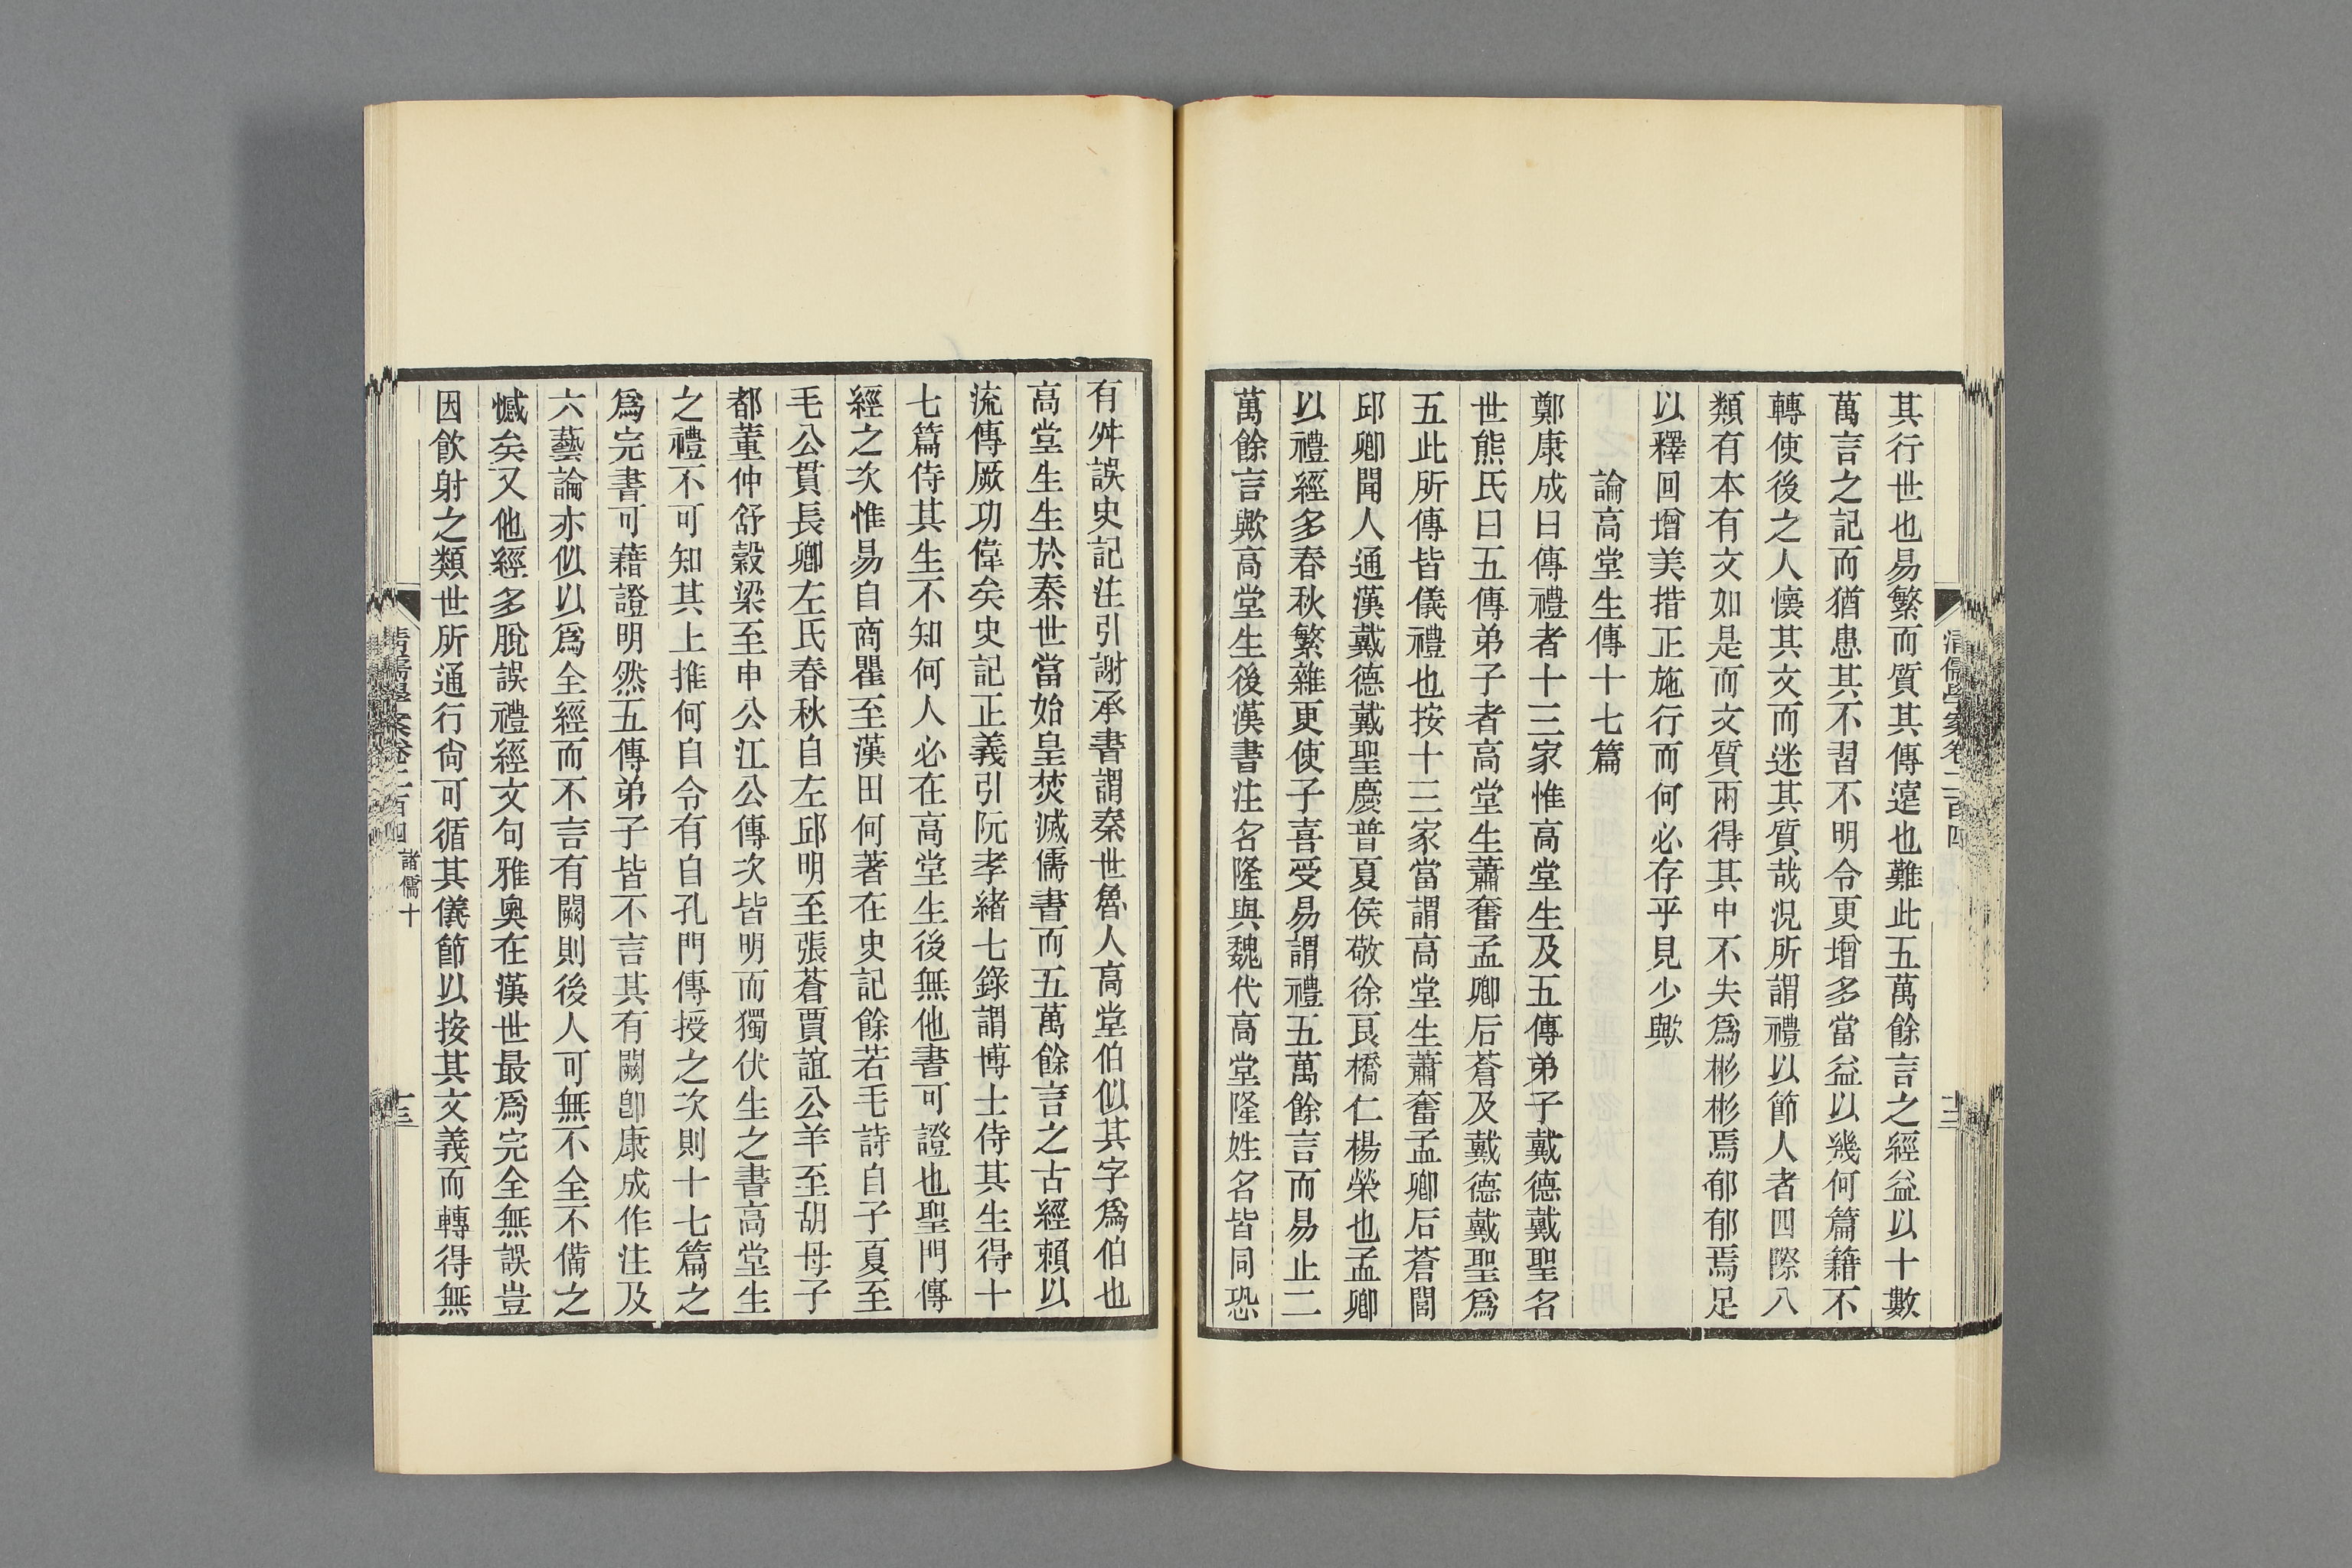 清儒學案卷二百四
十二
其行世也易繁而質其傳遠也難此五萬餘言之經益以十數
萬言之記而猶患其不習不明令更增多當益以幾何篇籍不
轉使後之人懷其文而迷其質哉況所謂禮以節人者四際八
類有本有文如是而文質兩得其中不失爲彬彬焉郁郁焉足
以釋回增美措正施行而何必存乎見少歟
論高堂生傳十七篇
鄭康成曰傳禮者十三家惟高堂生及五傳弟子戴德戴聖名
世熊氏曰五傳弟子者高堂生蕭奮孟卿后蒼及戴德戴聖爲
五此所傳皆儀禮也按十三家當謂高堂生蕭奮孟卿后蒼閭
邱卿聞人通漢戴德戴聖慶普夏侯敬徐良橋仁楊榮也孟卿
以禮經多春秋繁雜更使子喜受易謂禮五萬餘言而易止二
萬餘言歟高堂生後漢書注名隆與魏代高堂隆姓名皆同恐
有舛誤史記注引謝承書謂秦世魯人高堂伯似其字爲伯也
高堂生生於秦世當始皇焚滅儒書而五萬餘言之古經賴以
流傳厥功偉矣史記正義引阮孝緒七錄謂博士侍其生得十
七篇侍其生不知何人必在高堂生後無他書可證也聖門傳
經之次惟易自商瞿至漢田何著在史記餘若毛詩自子夏至
毛公貫長卿左氏春秋自左邱明至張蒼賈誼公羊至胡母子
都董仲舒穀梁至申公江公傳次皆明而獨伏生之書高堂生
之禮不可知其上推何自令有自孔門傳授之次則十七篇之
爲完書可藉證明然五傳弟子皆不言其有闕卽康成作注及
六藝論亦似以爲全經而不言有闕則後人可無不全不備之
憾矣又他經多脫誤禮經文句雅奧在漢世最爲完全無誤豈
因飲射之類世所通行尙可循其儀節以按其文義而轉得無
清儒學案卷二百四
諸儒十
十三